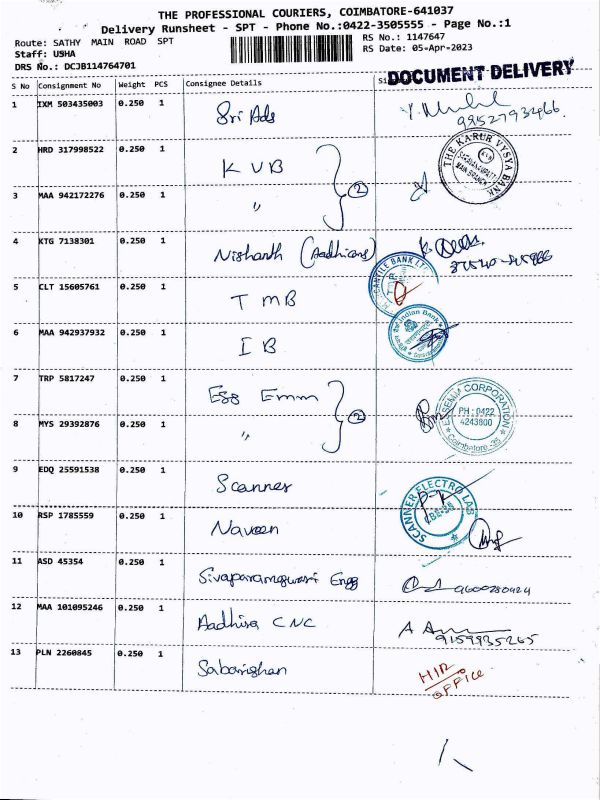 THE PROFESSIONAL COURIERS, COIMBATORE-641037
Delivery Runsheet - SPT - Phone No.:0422-3505555 - Page No.:1
Route: SATHY MAIN ROAD SPT
RS No.: 1147647
Staff: USHA
RS Date: 05-Apr-2023
DRS No.: DCJB114764701
DOCUMENT DELIVERY
S No Consignment No Weight PCS Consignee Details
1 IXM 503435003 0.250 1 Sri Ads
2 HRD 317998522 0.250 1 KVB
THE KARUR VYSYA BANK
MAIN BRANCH
3 MAA 942172276 0.250 1 〃 2
4 KTG 7138301 0.250 1 Nishanth
5 CLT 15605761 0.250 1 TMB
6 MAA 942937932 0.250 1 IB
Indian Bank
7 TRP 5817247 0.250 1 Ess Emm
8 MYS 29392876 0.250 1 〃 2
ESSENM CORPORATION
PH : 0422
4243800
Coimbatore-35
9 EDQ 25591538 0.250 1 Scanner
SCANNER ELECTRO LAB
CBE-35
10 RSP 1785559 0.250 1 Naveen
11 ASD 45354 0.250 1 Sivaparameswari Engg
12 MAA 101095246 0.250 1 Aadhira CNC
9159935265
13 PLN 2260845 0.250 1
H/R
OFFICE